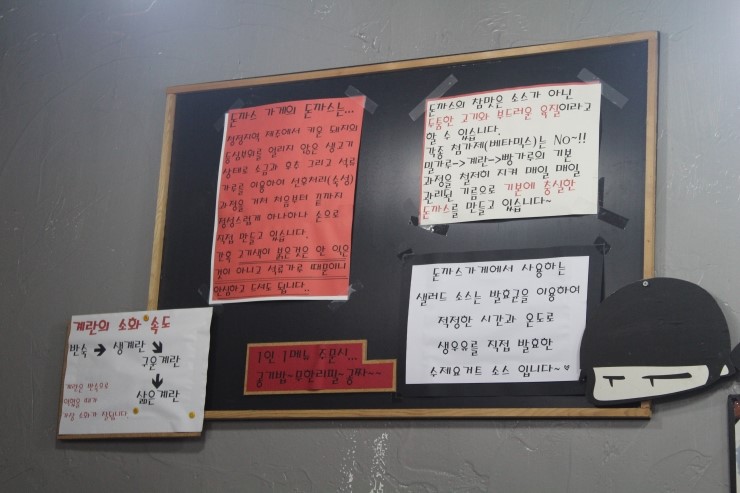 돈까스 가게의 돈까스는...
청정지역 제주에서 키운 돼지의
등심부위를 얼리지 않은 생고기
상태로 소금과 후추 그리고 석류
가루를 이용하여 선호처리(숙성)
과정을 거쳐 처음부터 끝까지
정성스럽게 하나하나 손으로
직접 만들고 있습니다.
간혹 고기색이 붉은것은 안 익은
것이 아니고 석류가루 때문이니
안심하고 드셔도 됩니다..
돈까스의 참맛은 소스가 아닌
두툼한 고기와 부드러운 육질이라고
할 수 있습니다.
각종 첨가제(베타믹스)는 No~!!
밀가루->계란->빵가루의 기본
과정을 철저히 지켜 매일 매일
관리된 기름으로 기본에 충실한
돈까스를 만들고 있습니다~
돈까스가게에서 사용하는
샐러드 소스는 발효균을 이용하여
적정한 시간과 온도로
생우유를 직접 발효한
수제요거트 소스 입니다~♥
계란의 소화 속도
반숙 → 생계란
구운계란
삶은계란
계란은 반숙으로
먹었을 때가
가장 소화가 잘됩니다
1인 1메뉴 주문시...
공기밥~무한리필~공짜~~